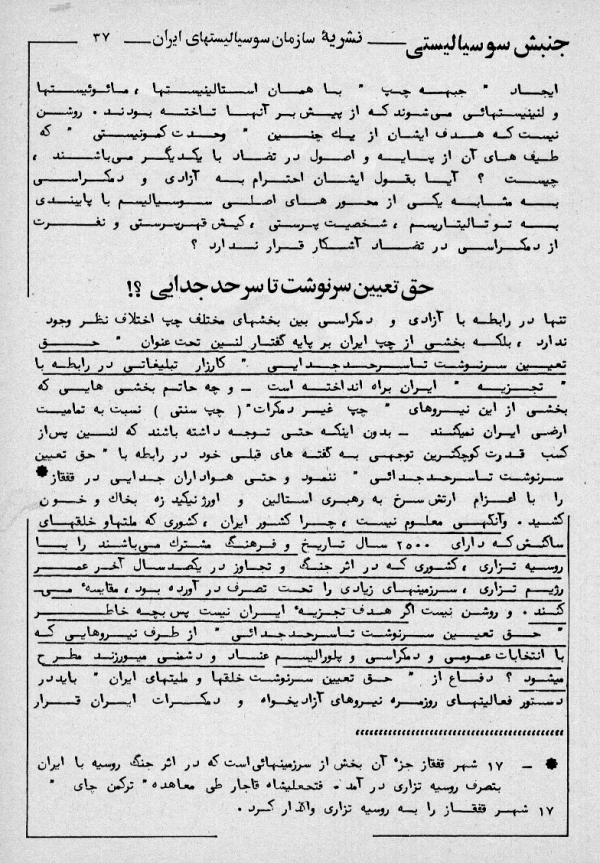 جنبش سوسیالیستی — نشریهٔ سازمان سوسیالیستهای ایران ۳۷
ایجاد " جبهه چپ " با همان استالینیستها ، مائوئیستها
و لنینیستهائی می‌شوند که از پیش بر آنها تاخته بودند . روشن
نیست که هدف ایشان از یك چنین " وحدت کمونیستی " که
طیف های آن از پایه و اصول در تضاد با یکدیگر می‌باشند ،
چیست ؟ آیا بقول ایشان احترام به آزادی و دمکراسی
به مشابه یکی از محور های اصلی سوسیالیسم با پایبندی
به توتالیتاریسم ، شخصیت پرستی ، کیش قهرپرستی و نفرت
از دمکراسی در تضاد آشکار قرار ندارد ؟
حق تعیین سرنوشت تا سرحد جدایی ؟!
تنها در رابطه با آزادی و دمکراسی بین بخشهای مختلف چپ اختلاف نظر وجود
ندارد ، بلکه بخشی از چپ ایران بر پایه گفتار لنین تحت عنوان " حق
تعیین سرنوشت تاسرحدجدایی " کارزار تبلیغاتی در رابطه با
" تجزیه " ایران براه انداخته است — و چه حاتم بخشی هایی که
بخشی از این نیروهای " چپ غیر دمکرات" ( چپ سنتی ) نسبت به تمامیت
ارضی ایران نمیکنند — بدون اینکه حتی توجه داشته باشند که لنین پس‌از
کسب قدرت کوچکترین توجهی به گفته های قبلی خود در رابطه با " حق تعیین
سرنوشت تاسرحدجدائی " ننمود و حتی هواداران جدایی در قفقاز*
را با اعزام ارتش سرخ به رهبری استالین و اورژنیکیدزه بخاك و خون
کشید . وآنگهی معلوم نیست ، چرا کشور ایران ، کشوری که ملتهاو خلقهای
ساکنش که دارای ۲۵۰۰ سال تاریخ و فرهنگ مشترك می‌باشند را با
روسیه تزاری ، کشوری که در اثر جنگ و تجاوز در یکصدسال آخر عمر
رژیم تزاری ، سرزمینهای زیادی را تحت تصرف در آورده بود ، مقایسه می‌-
کنند . و روشن نیست اگر هدف تجزیهٔ ایران نیست پس بچه خاطر
" حق تعیین سرنوشت تاسرحدجدائی " از طرف نیروهایی که
با انتخابات عمومی و دمکراسی و پلورالیسم عناد و دشمنی میورزند مطرح
میشود ؟ دفاع از " حق تعیین سرنوشت خلقها و ملیتهای ایران " بایددر
دستور فعالیتهای روزمره نیروهای آزادیخواه و دمکرات ایران قرار
* — ۱۷ شهر قفقاز جزء آن بخش از سرزمینهائی‌است که در اثر جنگ روسیه با ایران
بتصرف روسیه تزاری در آمد . فتحعلیشاه قاجار طی معاهده " ترکمن چای "
۱۷ شهر قفقاز را به روسیه تزاری واگذار کرد .